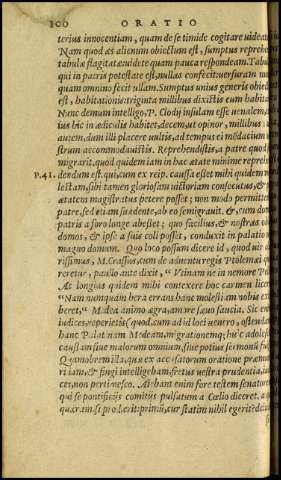 100 ORATIO
terius innocentiam, quam de se timide cogitare uidea
Nam quod æs alienum obiectum est, sumptus reprehe
tabulæ flagitatæ: uidete quam pauca respondeam. Tabul
qui in patris potestate est, nullas conficit: uersuram nu
quam omnino fecit ullam. Sumptus unius generis obied
est, habitationis: triginta millibus dixistis eum habita
Nunc demum intelligo, P. Clodij insulam esse uenalem,
ius hic in ædiculis habitet, decem, ut opinor, millibus.
autem, dum illi placere uultis, ad tempus eius mēdacium
strum accommodauistis. Reprehendistis, a patre quod
migrarit, quod quidem iam in hac ætate minime reprehe
P.41. dendum est. qui, cum ex reip. caussa esset mihi quidem
lestam, sibi tamen gloriosam uictoriam consecutus, &
ætatem magistratus petere posset; non modo permitten
patre, sed etiam suadente, ab eo semigrauit. &, cum dom
patris a foro longe abesset; quo facilius, & nostras ob
domos, & ipse a suis coli posset, conduxit in palatio
magno domum. Quo loco possum dicere id, quod uir
rissimus, M. Crassus, cum de aduentu regis Ptolemæi q
reretur, paulo ante dixit, " Vtinam ne in nemore Pel
Ac longius quidem mihi contexere hoc carmen lice
"Nam nunquam hera errans hanc molestiam nobis ex
beret, " Medea animo ægra, amore sæuo saucia. Sic en
iudices, reperietis (quod, cum ad id loci uenero, ostenda
hanc Palatinam Medeam, migrationemq; huic adoles
caussam siue malorum omnium, siue potius sermonū fui
Quamobrem illa, quæ ex accusatorum oratione præmu
ri iam, & fingi intelligebam, fretus uestra prudentia, iu
ces, non pertimesco. Aiebant enim fore testem senatore
qui se pontificijs comitijs pulsatum a Cœlio diceret. a
quæram, si prodierit: primū, cur statim nihil egerit? dein